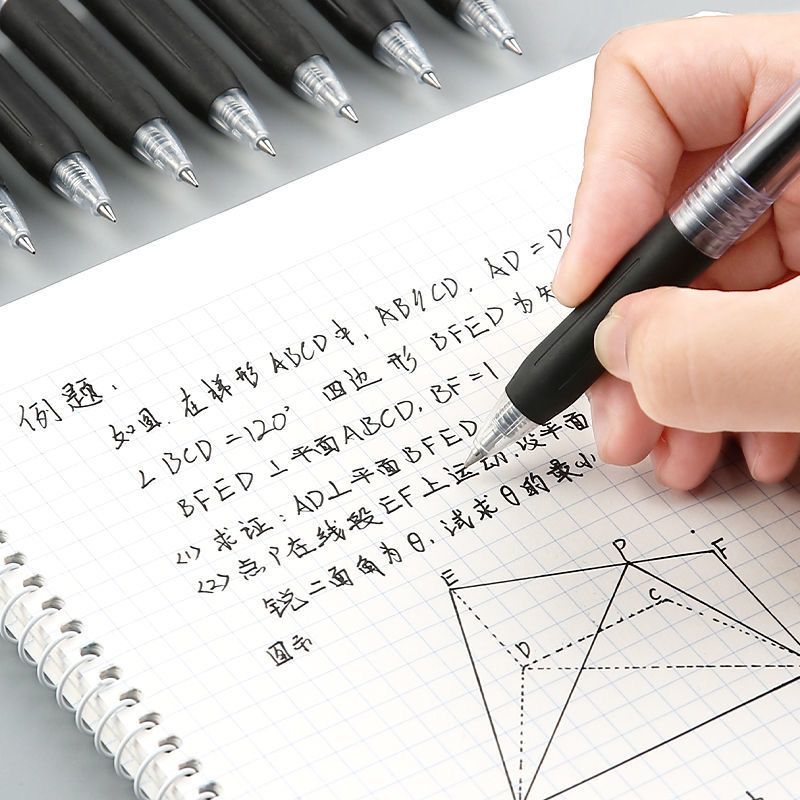 例题:
如图,在梯形ABCD中,AB∥CD,AD=DC
∠BCD=120° 四边形BFED为矩
BFED⊥平面ABCD,BF=1
(1)求证:AD⊥平面BFED
(2)点P在线段EF上运动,设平面
锐二面角为θ,试求θ的最小
图示
P F
E C
D